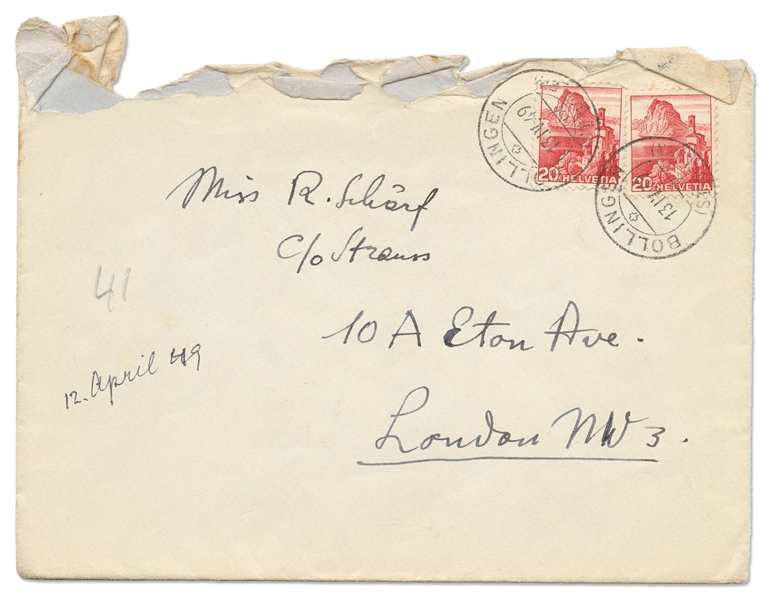 BOLLINGEN
13 IV 49
20 HELVETIA
20 HELVETIA
BOLLINGEN
13 IV
Miss R. Schärf
c/o Strauss
41
10 A Eton Ave.
12. April 49
London NW 3.